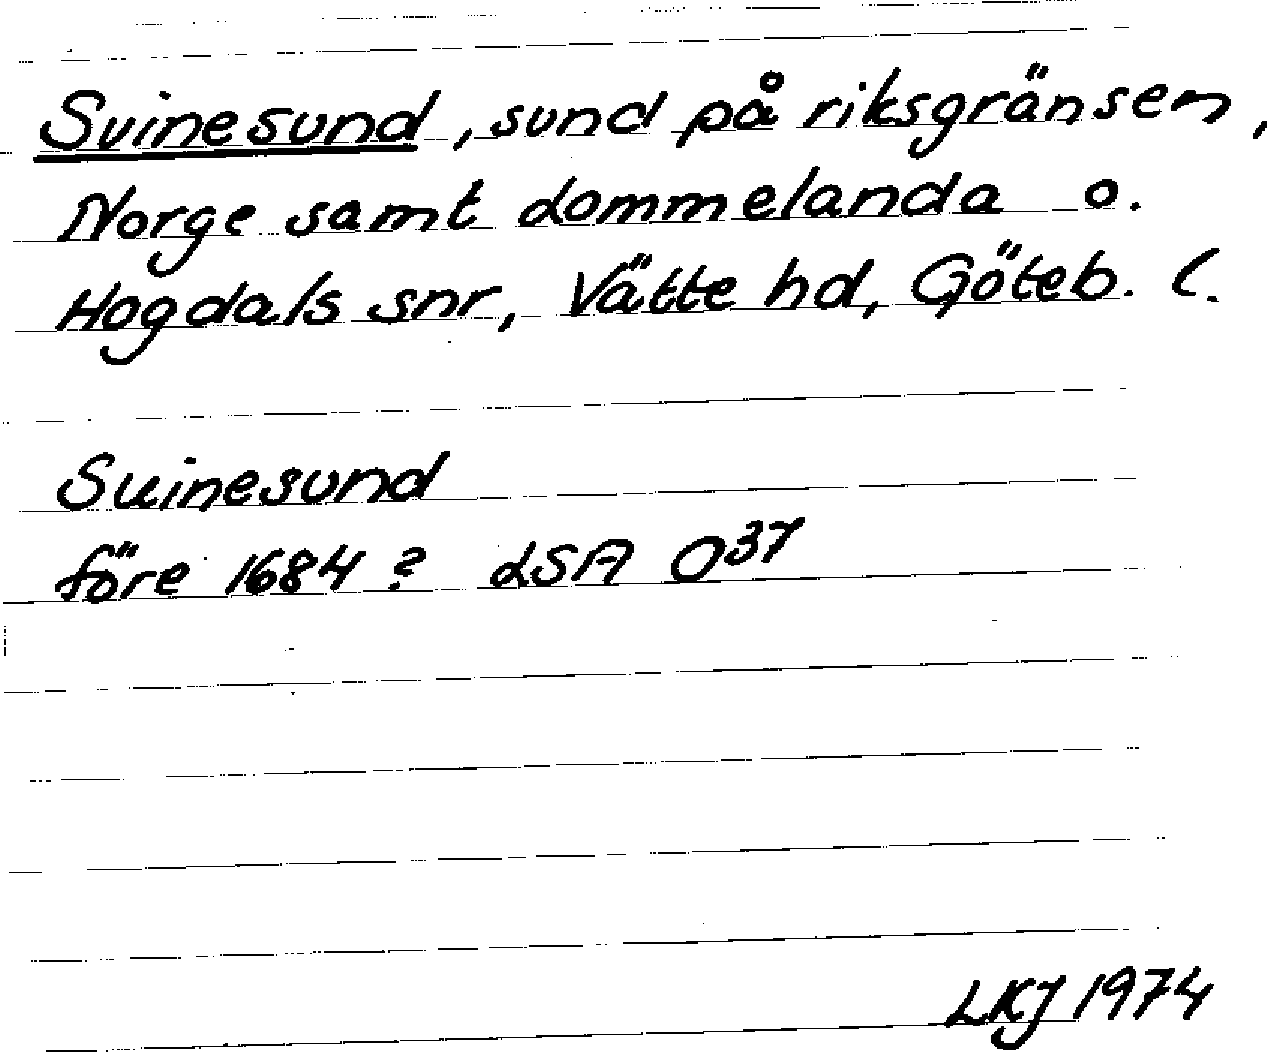 Svinesund, sund på riksgränsen,
Norge samt Lommelanda o.
Hogdals snr, Vätte hd, Göteb. l.
Suinesund
före 1684? LSA O37
LKJ 1974